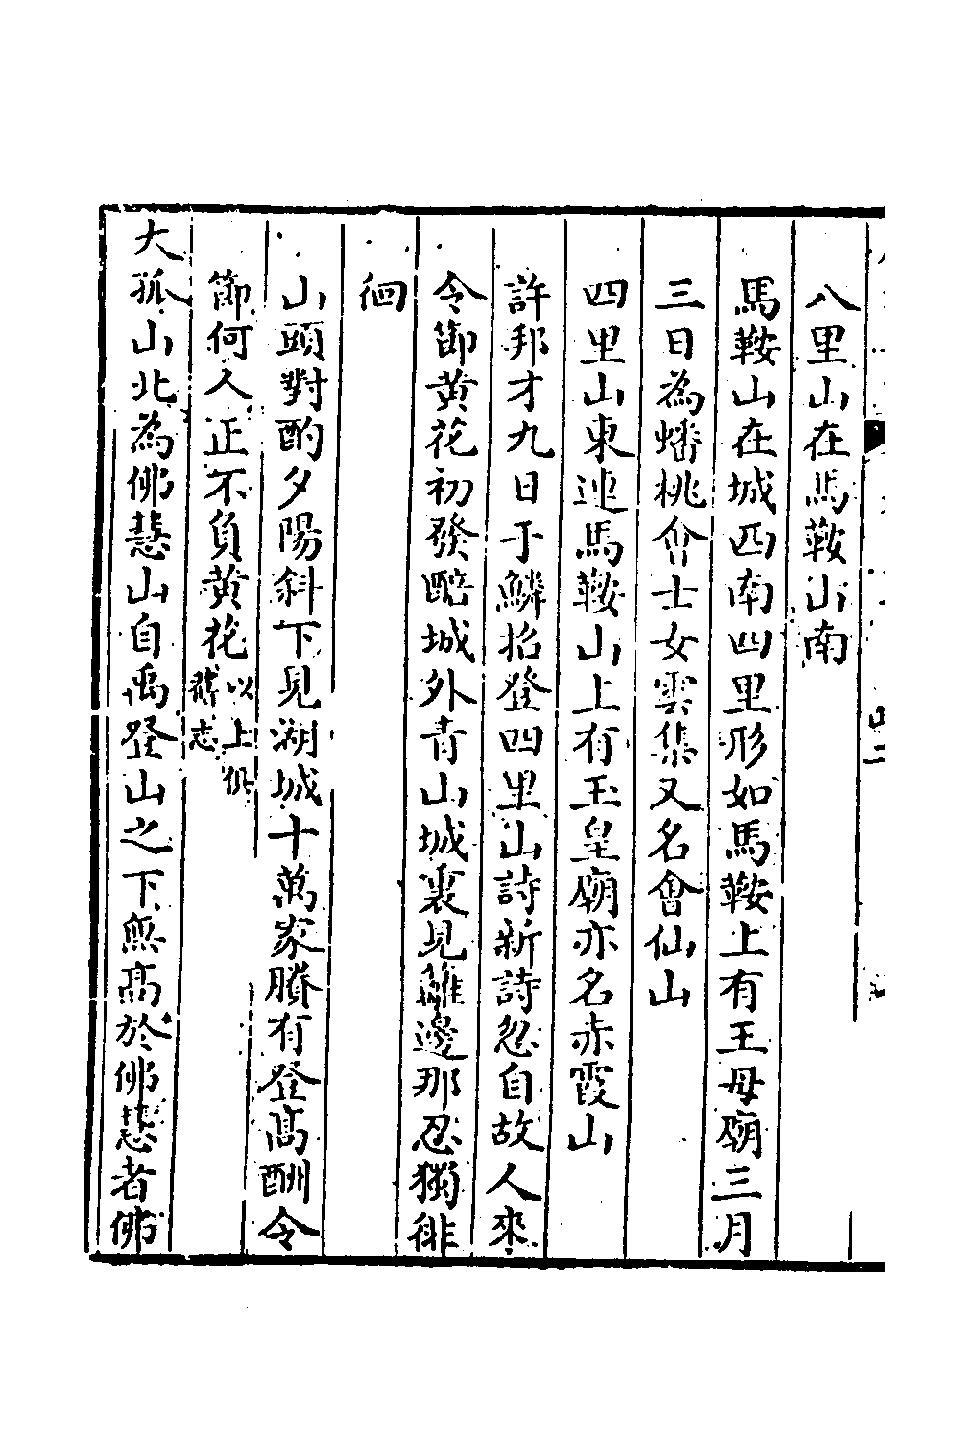 八里山在馬鞍山南
馬鞍山在城西南四里形如馬鞍上有王母廟三月
三日為蟠桃會士女雲集又名會仙山
四里山東連馬鞍山上有玉皇廟亦名赤霞山
許邦才九日于鱗招登四里山詩新詩忽自故人來
令節黃花初發醅城外青山城裏見籬邊那忍獨徘
徊
山頭對酌夕陽斜下見湖城十萬家賸有登高酬令
節何人正不負黃花以上仍
舊志
大孤山北為佛慧山自禹登山之下無高於佛慧者佛